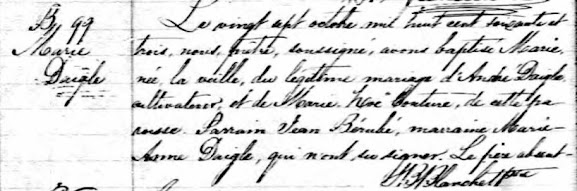 B 99
Marie
Daigle
Le vingt sept octobre mil huit cent soixante et
trois, nous, prêtre, soussigné, avons baptisé Marie,
née, la veille, du légitime mariage d'André Daigle,
cultivateur, et de Marie Noé Couture, de cette pa
roisse. Parrain Jean Bérubé, marraine Marie-
Anne Daigle, qui n'ont su signer. Le père absent.
Blanchet Ptre